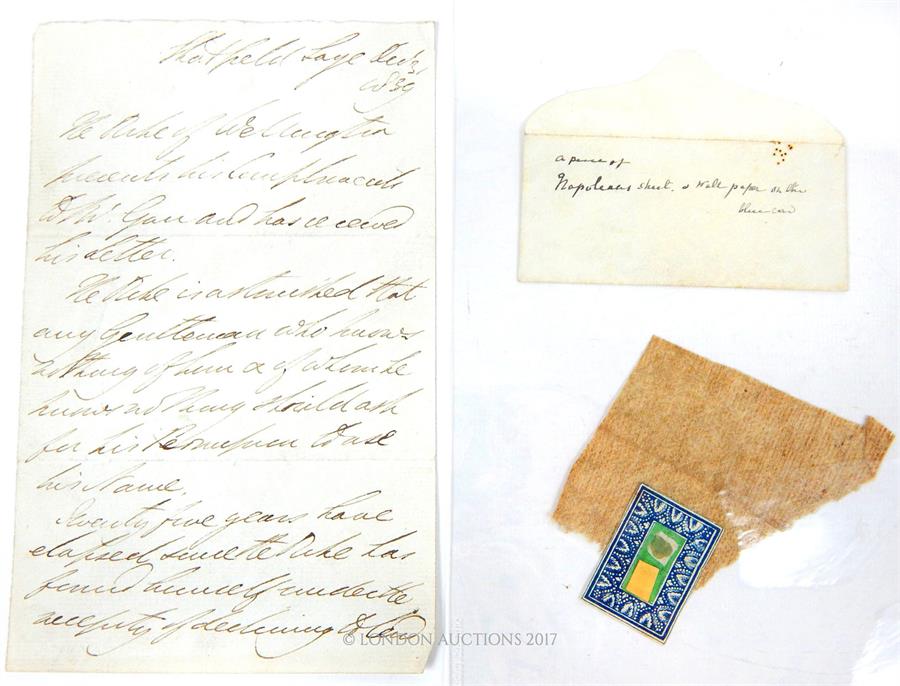 Strathfield Saye Novr 3
1839
The Duke of Wellington
presents his Compliments
to Mr. Gau and has received
his Letter.
The Duke is astonished that
any Gentleman who knows
nothing of him & of whom he
knows nothing should ask
for his Permission to use
his Name.
Twenty five years have
elapsed since the Duke has
found himself under the
necessity of declining to
a piece of
Napoleans sheet. & wall paper on the
blue card
© LONDON AUCTIONS 2017